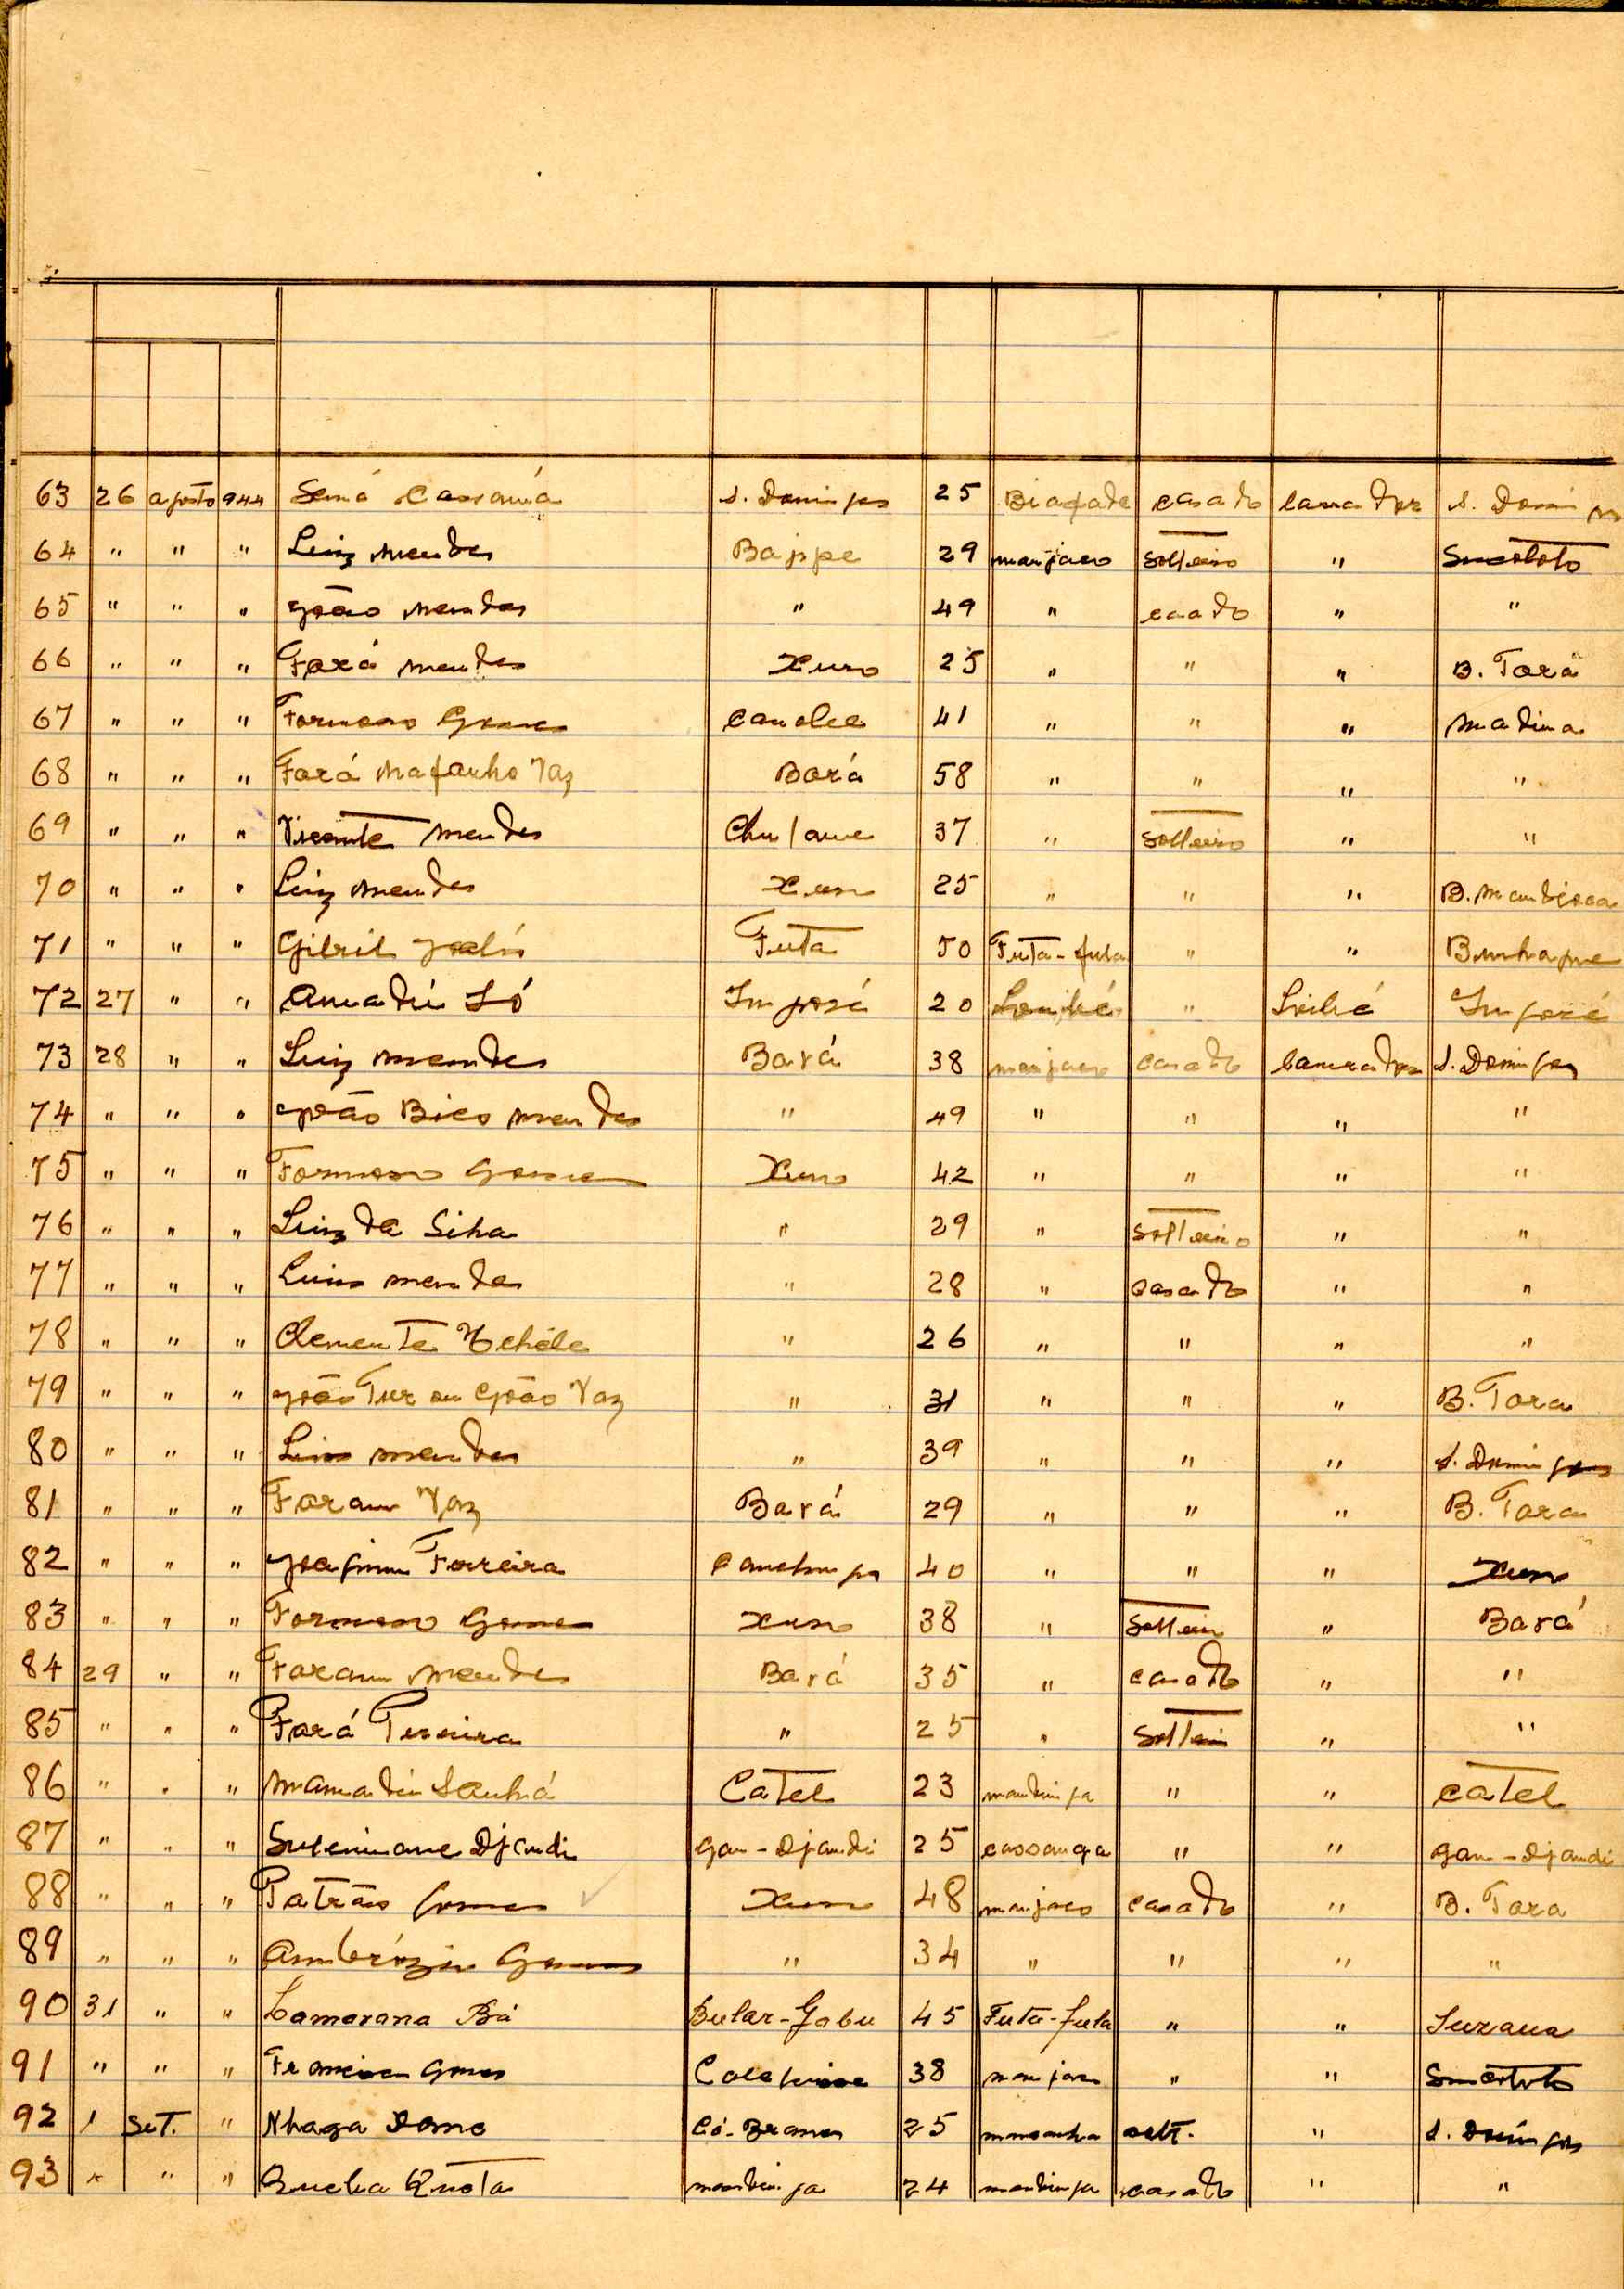 63 26 agosto 944 Semá Cassamá S. Domingos 25 Biafada casado lavrador S. Domingos
64 " " " Luiz Mendes Bajope 29 manjaco solteiro " Sucototo
65 " " " João Mendes " 49 " casado " "
66 " " " Fará Mendes Xuro 25 " " " B. Tará
67 " " " Formoso Gomes Canobe 41 " " " Madina
68 " " " Fará Mafanho Vaz Bará 58 " " " "
69 " " " Vicente Mendes Churlame 37 " solteiro " "
70 " " " Luiz Mendes Xuro 25 " " " B. Mandioca
71 " " " Gibril Jaló Futa 50 Futa-fula " " Bunhaque
72 27 " " Amadú Só Ingoré 20 " Ingoré
73 28 " " Luiz Mendes Bará 38 manjaco casado lavrador S. Domingos
74 " " " João Bico Mendes " 49 " " " "
75 " " " Formoso Gomes Xuro 42 " " " "
76 " " " Luiz da Silva " 29 " solteiro " "
77 " " " Luis Mendes " 28 " casado " "
78 " " " Clemente " 26 " " " "
79 " " " João Tur ou João Vaz " 31 " " " B. Tara
80 " " " Luis Mendes " 39 " " " S. Domingos
81 " " " Faram Vaz Bará 29 " " " B. Tara
82 " " " Joaquim Ferreira Canchungo 40 " " " Xuro
83 " " " Formoso Gomes Xuro 38 " solteiro " Bará
84 29 " " Faram Mendes Bará 35 " casado " "
85 " " " Fará Pereira " 25 " solteiro " "
86 " " " Mamadú Sanhá Catel 23 mandinga " " Catel
87 " " " Suleimane Djandi Gan-Djandi 25 cassanga " " Gan-Djandi
88 " " " Patrão Gomes Xuro 48 manjaco casado " B. Tara
89 " " " Ambrózio Gomes " 34 " " " "
90 31 " " Lamarana Bá Bular-Gabu 45 Futa-fula " " Suzana
91 " " " Francisco Gomes Calequisse 38 manjaco " " Sucototo
92 1 Set. " Nhaga Dama Có-Brames 25 mansonha solt. " S. Domingos
93 " " " Quecha Quota mandinga 24 mandinga casado " "